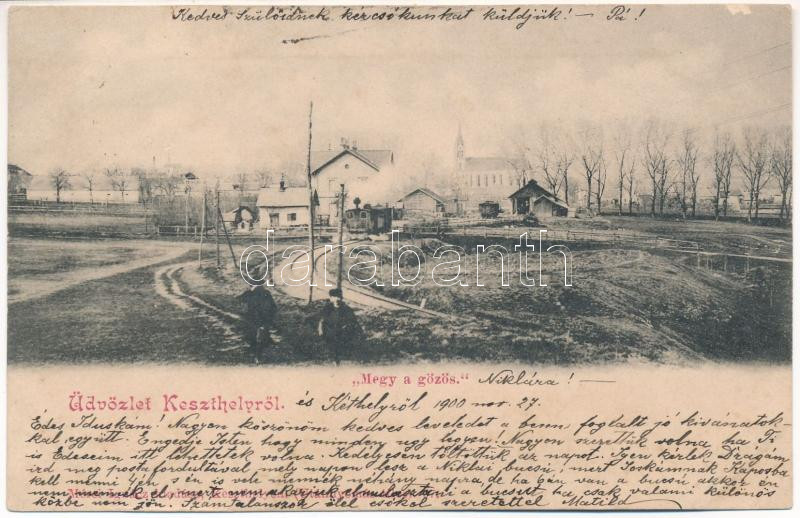 Kedves Szülőidnek kézcsókunkat küldjük! — Pá!
darabanth
„Megy a gőzös." Niklára! —
Üdvözlet Keszthelyről. és Kéthelyről 1900 nov. 27.
Édes Iduskám! Nagyon köszönöm kedves leveledet a benn foglalt jó kivánatok-
kal együtt. Engedje Isten hogy minden ugy legyen. Nagyon szerettük volna ha Ti
is Édeseim itt lehettetek volna. Kedélyesen töltöttük az napot. Igen kérlek Drágám
ird meg postafordultával mely napon lesz a Niklai bucsú! mert Joskámnak Kaposba
kell menni 4en s én is vele mennék néhány napra, de ha 6án van a bucsú akkor én
nem mert a bucsut ha csak valami különös
közbe nem jön. Számtalanszor ölel csókol szeretettel Matild